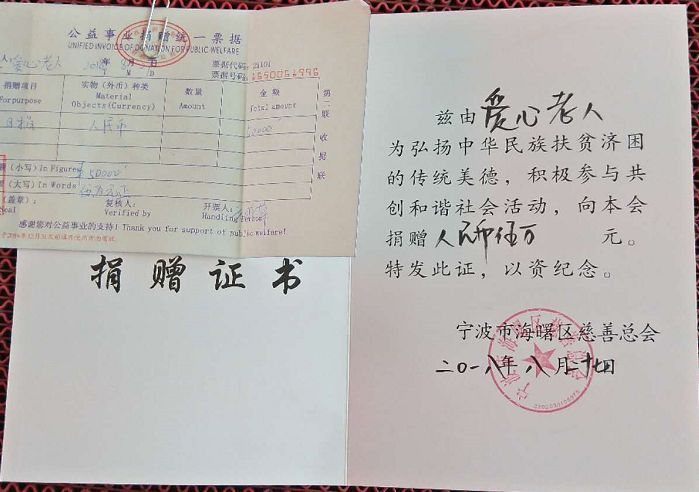 公益事业捐赠统一票据
UNIFIED INVOICE OF DONATION FOR PUBLIC WELFARE
人 爱心老人
2018年8月 日
Y M D
票据代码: 21101
票据号码:
捐赠项目
For purpose
实物（外币）种类
Material
Objects(Currency)
数量
Amount
金额
Total amount
人民币
50000
第二联 收据联
（小写）In Figures ¥50000
（大写）In Words 伍万元正
（盖章）:
Seal
复核人:
Verified by
开票人:
Handling Person
感谢您对公益事业的支持! Thank you for support of public welfare!
捐赠证书
兹由爱心老人
为弘扬中华民族扶贫济困
的传统美德，积极参与共
创和谐社会活动，向本会
捐赠人民币伍万 元。
特发此证，以资纪念。
宁波市海曙区慈善总会
二〇一八年八月二十七日